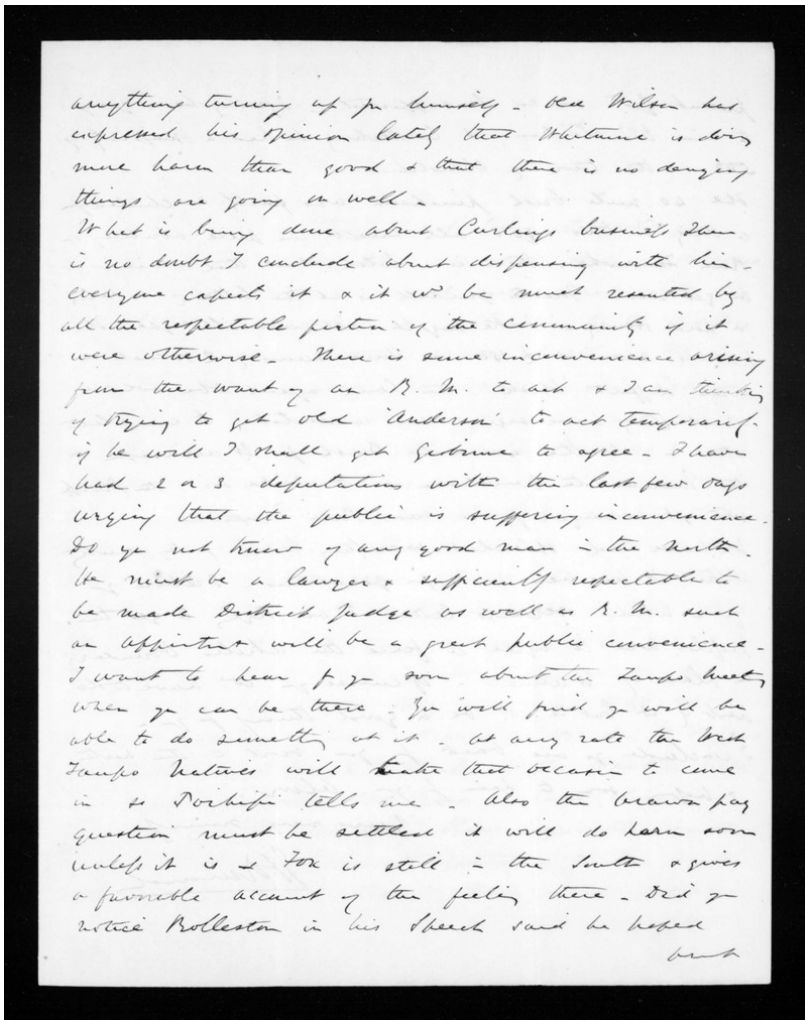 anything turning up for himself - Old Wilson has
expressed his opinion lately that Whitmore is doing
more harm than good & that there is no denying
things are going on well -
What is being done about Curlings business There
is no doubt I conclude about dispensing with him -
everyone expects it & it wd be most resented by
all the respectable portion of the community if it
were otherwise - There is some inconvenience arising
from the want of an R. M. to act & I am thinking
of trying to get old Anderson to act temporarily -
if he will I shall get Gisborne to agree - I have
had 2 or 3 deputations with the last few days
urging that the public is suffering inconvenience -
Do yo not know of any good man in the North -
He must be a lawyer & sufficiently respectable to
be made District Judge as well as R. M. such
an appointmt will be a great public convenience -
I want to hear fr yo soon about the Taupo Meetg
when yo can be there - You will find yo will be
able to do somethg at it - at any rate the West
Taupo Natives will take that occasion to come
in so tells me - Also the pay
question must be settled it will do harm soon
unless it is - Fox is still in the South & gives
a favorable account of the feeling there - Did yo
notice Rolleston in his Speech said he hoped